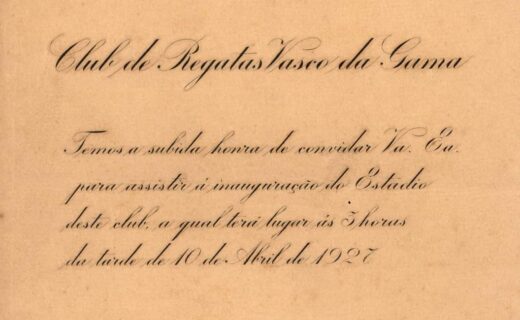 Club de Regatas Vasco da Gama
Temos a subida honra de convidar Va. Ea.
para assistir á inauguração do Estádio
deste club, a qual terá lugar ás 3 horas
da tarde de 10 de Abril de 1927